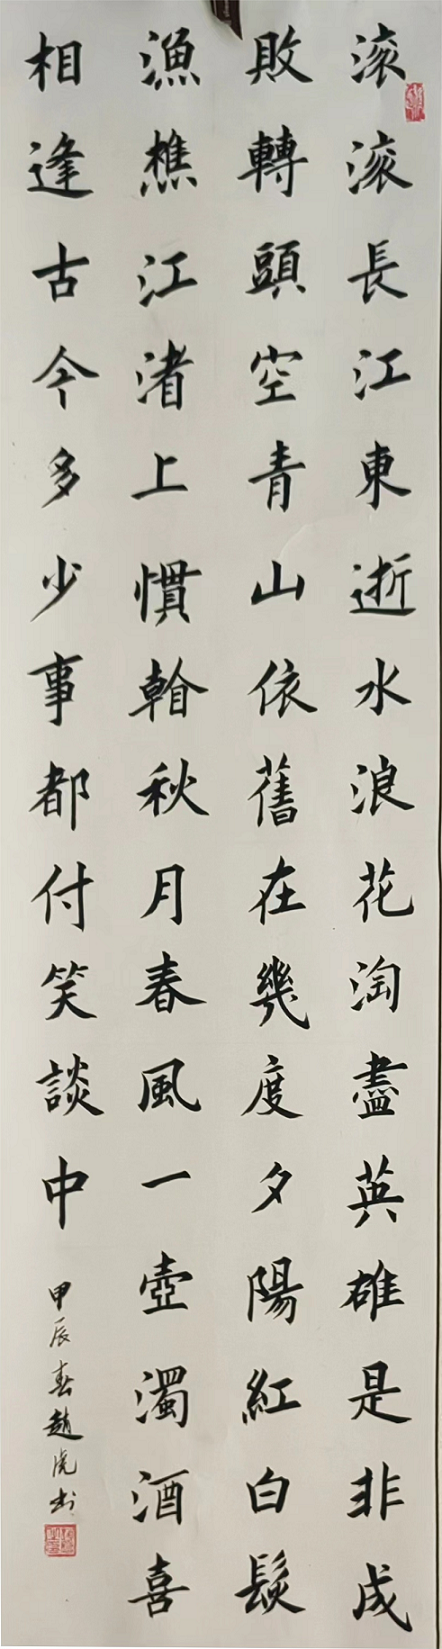 滚滚長江東逝水浪花淘盡英雄是非成
敗轉頭空青山依舊在幾度夕陽紅白髮
漁樵江渚上慣看秋月春風一壺濁酒喜
相逢古今多少事都付笑談中
甲辰春趙虎书